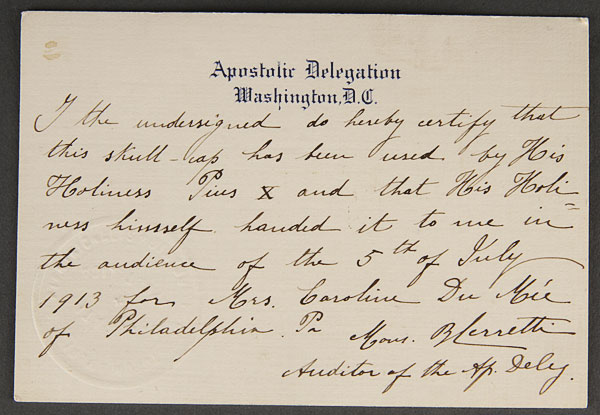 Apostolic Delegation
Washington, D.C.
I the undersigned do hereby certify that
this skull-cap has been used by His
Holiness Pius X and that His Holi=
ness himsself handed it to me in
the audience of the 5th of July
1913 for Mrs. Caroline Du Mée
of Philadelphia. Pa
Mons. B Cerretti
Auditor of the Ap. Deleg.